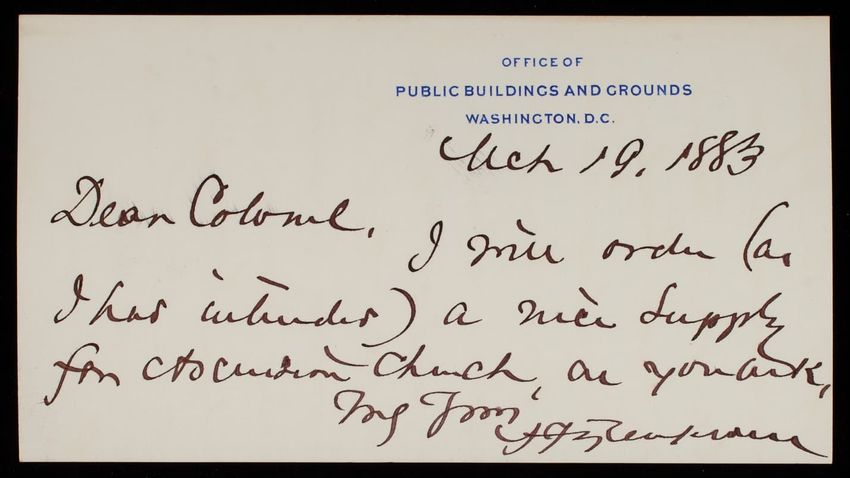 OFFICE OF
PUBLIC BUILDINGS AND GROUNDS
WASHINGTON, D.C.
Mch 19, 1883
Dear Colonel,
I will order (as
I had intended) a nice supply
for Ascension Church, as you ask,